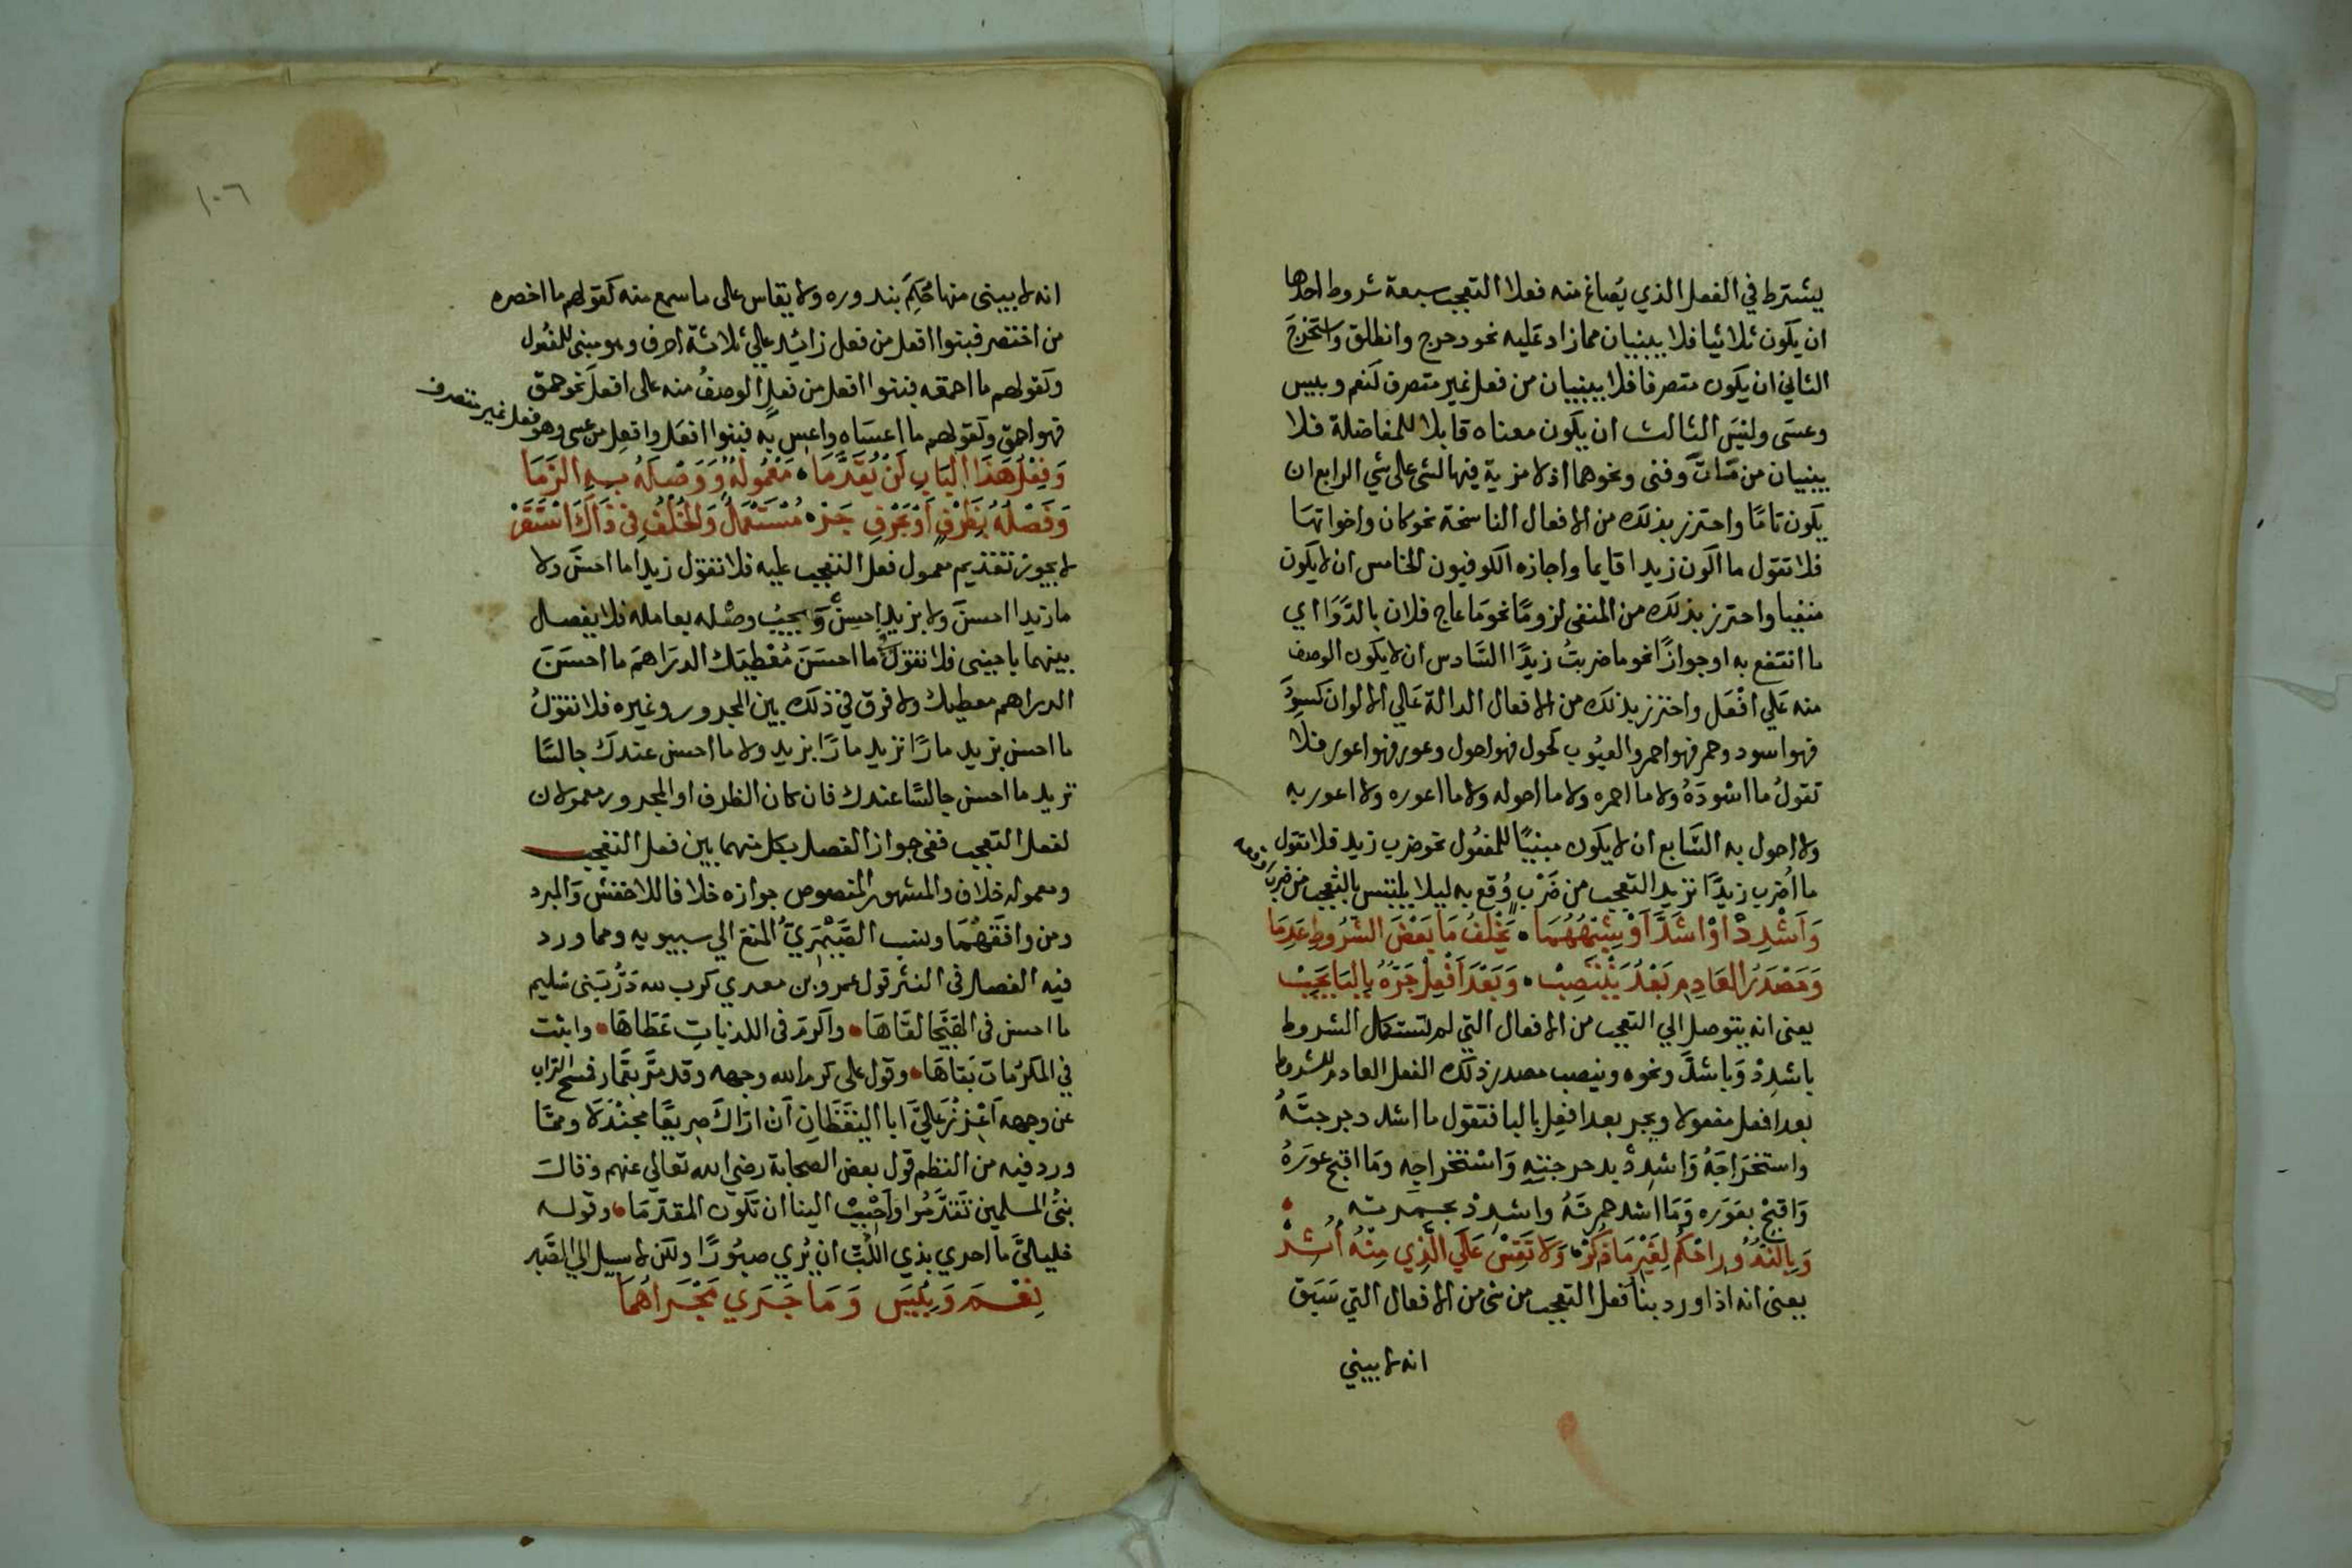 يشترط في الفعل الذي يُصاغ منه فعلا التعجب سبعة شروط احدها
ان يكون ثلاثيا فلا يبنيان مما زاد عليه نحو دحرج وانطلق واستَخْرَجَ
الثاني ان يكون متصرفا فلا يبنيان من فعل غير متصرف كنعم وبيس
وعسَى وليسَ الثالث ان يكون معناه قابلا للمفاضلة فلا
يبنيان من مَاتَ وفنى ونحوهما اذ لا مزية فيها لشى على شي الرابع ان
يكون تامًا واحترز بذلك من الافعال الناسخة نحو كان واخواتها
فلا تقول ما اكون زيدا قايما واجازه الكوفيون الخامس ان لا يكون
منفيا واحترز بذلك من المنفى لزومًا نحو مَا عاج فلان بالدَّوَا اي
ما انتفع به او جوازًا نحو ما ضربتُ زيدًا السَّادس ان لا يكون الوصف
منه عَلي افْعَل واحترز بذلك من الافعال الدالة عَلي الالوان كسَوِدَ
فهو اسود وحمر فهو احمر والعيُوب كحول فهو احول وعور فهو اعور فلا
تقولُ ما اسْودَهُ ولا ما احمره ولا ما احوله ولا ما اعوره ولا اعور به
ولا احول به السَّابع ان لا يكون مبنيًا للمفعُول نحو ضرب زيد فلا تقول
ما اَضرب زيدًا تريد التعجب من ضَرْبٍ وُقع به ليلا يلتبس بالتعجب من ضربٍ وقعه
وَاَشْدِدْ اوْ اشَدَّ اَوْ شِبْهُهُمَا • يَخْلفُ مَا بَعْضَ الشرُوطِ عَدِمَا
وَمَصْدَرُ العَادِمِ بَعْدُ يَنْتَصِبْ • وَبَعْدَ اَفْعِلْ جَرّهُ بِالبَا يَجِبْ
يعنى انه يتوصل الي التعجب من الافعال التي لم تستكمل الشروط
باشدِدْ وَباشدَّ ونحوه وينصب مصدر ذلك الفعل العادم للشروط
بعد افعل مفعولا ويجر بعد افعِل بالبا فتقول ما اشد دحرجتَهُ
واستخرَاجَهُ وَاشدِدْ بدحرجتِهِ وَاسْتخراجِهِ ومَا اقبح عوَرَهُ
وَاقبِحْ بعَوَره وَمَا اشد حمرتَهُ واشدِدْ بحمرته •
وَبِالنُّدُورِ احْكُم لِغَيْرِ مَا ذُكِرْ • وَلَا تَقِسْ عَلَي الَّذِي مِنْهُ اُثِرْ
يعنى انه اذا ورد بنا فعل التعجب من شى من الافعال التي سَبَق
انه لا يبني
١٠٦
انه لا يبنى منها حُكِمَ بندوره ولا يقاس على ما سمع منه كقولهم ما اخصره
من اختصر فبنوا افعل من فعل زائد علي ثلاثة احرف وهو مبنى للمفعُول
وكقولهم ما احمقه فبنوا افعل من فعلٍ الوصفُ منه على افعلَ نحو حمق
فهو احمق وكقولهم ما اعسَاه واعس به فبنوا افعَل وافعِل من عسى وهو فعل غير متصرف
وَفِعْلُ هَذَا البَابِ لَنْ يُقَدَّمَا • مَعْمُولُهُ وَوَصْلَهُ بِهِ الزَمَا
وَفَصْلُهُ بِظَرْفٍ اَوْ بِحَرْفِ جَرْ • مُسْتَعْمَلٌ وَالخُلْفُ فِي ذَاكَ اسْتَقَرْ
لا يجوز تقديم معمول فعل التعجب عليه فلا تقول زيدًا ما احسَنَ ولا
ما زيدا احسنَ ولا بزيدٍ احسِنْ وَيجبُ وصْله بعامله فلا يفصل
بينهما باجنبى فلا تقولُ ما احسَنَ مُعْطِيَك الدرَاهمَ ما احسَنَ
الدراهم معطيك ولا فرق في ذلك بين المجرور وغيره فلا تقولُ
ما احسن بزيد مارًا تريد مارًا بزيد ولا ما احسن عندك جالسًا
تريد ما احسن جالسًا عندك فان كان الظرف او المجرور معمولا ن
لفعل التعجب ففي جواز الفصل بكل منهما بين فعل التعجب
ومعموله خلاف والمشهور المنصوص جوازه خلافا للاخفش وَالمبرد
ومن وافقَهُمَا ونسب الصَّيْمَرِيّ المنع الي سيبويه ومما ورد
فيه الفصل فى النثر قول عمرو بن معدي كرب لله دَرُّ بَنى سُليم
ما احسن فى الهَيْجَا لقَاهَا • واكرمَ فى اللزباتِ عَطَاهَا • واثبت
في المكرُمات بَقاهَا • وقول على كرم الله وجهه وقد مرَّ بعَمَّار فمسَح التراب
عن وجهه اَعْزِزْ عَليَّ ابا اليَقظَانِ اَن ارَاكَ صريعًا مجَنْدَلَا وممَّا
ورد فيه من النظم قول بعض الصحابة رضي الله تعالي عنهم وقالَ
نبيُّ المسلمين تَقدَّمُوا وَاَحْبِبْ الينا ان تكون المقدَّمَا • وقوله
خليليَّ ما احري بذي اللُّبِّ ان يُري صبُورًا ولكن لا سبيل الي الصَّبر
نِعْمَ وَبِيسَ وَمَا جَرَي مَجْرَاهُمَا